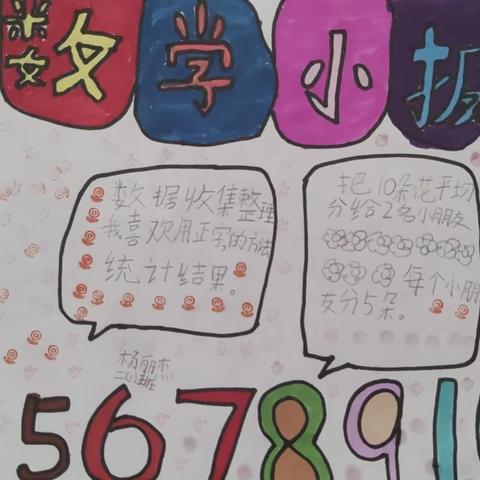 数学小报
数据收集整理
我喜欢用正字的方法
统计结果。
把10朵花平均
分给2名小朋友
每个小朋
友分5朵。
杨丽杰
二(1)班
5678910